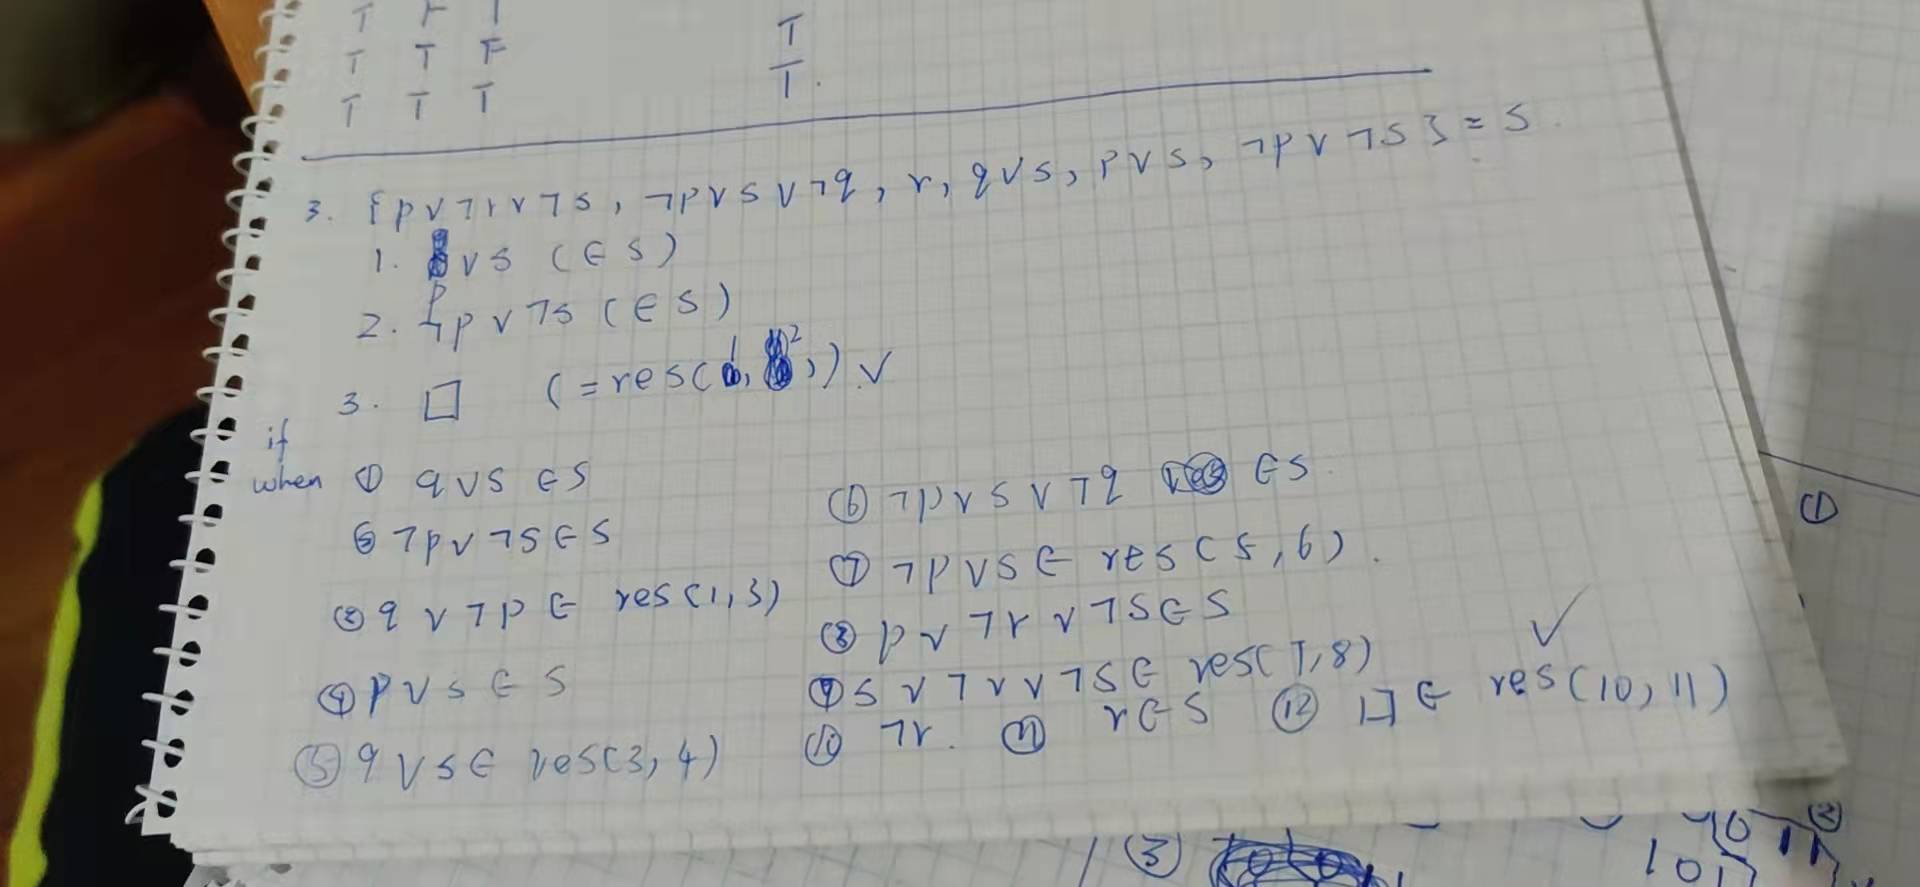 T F T
T T F
T T T
T
T.
3. {p∨¬r∨¬s, ¬p∨s∨¬q, r, q∨s, p∨s, ¬p∨¬s} = S.
1. p∨s (∈S)
2. ¬p∨¬s (∈S)
3. □ (=res(1, 2)) ✓
if
when ① q∨s ∈S
¬p∨¬s∈S
③ q∨¬p ∈ res(1,3)
④ p∨s ∈ S
⑤ q∨s∈ res(3,4)
⑥ ¬p∨s∨¬q ∈S.
⑦ ¬p∨s∈ res(5,6).
⑧ p∨¬r∨¬s∈S
⑨ s∨¬r∨¬s∈ res(7,8)
⑩ ¬r. ⑪ r∈S ⑫ □ ∈ res(10,11) ✓
①
③